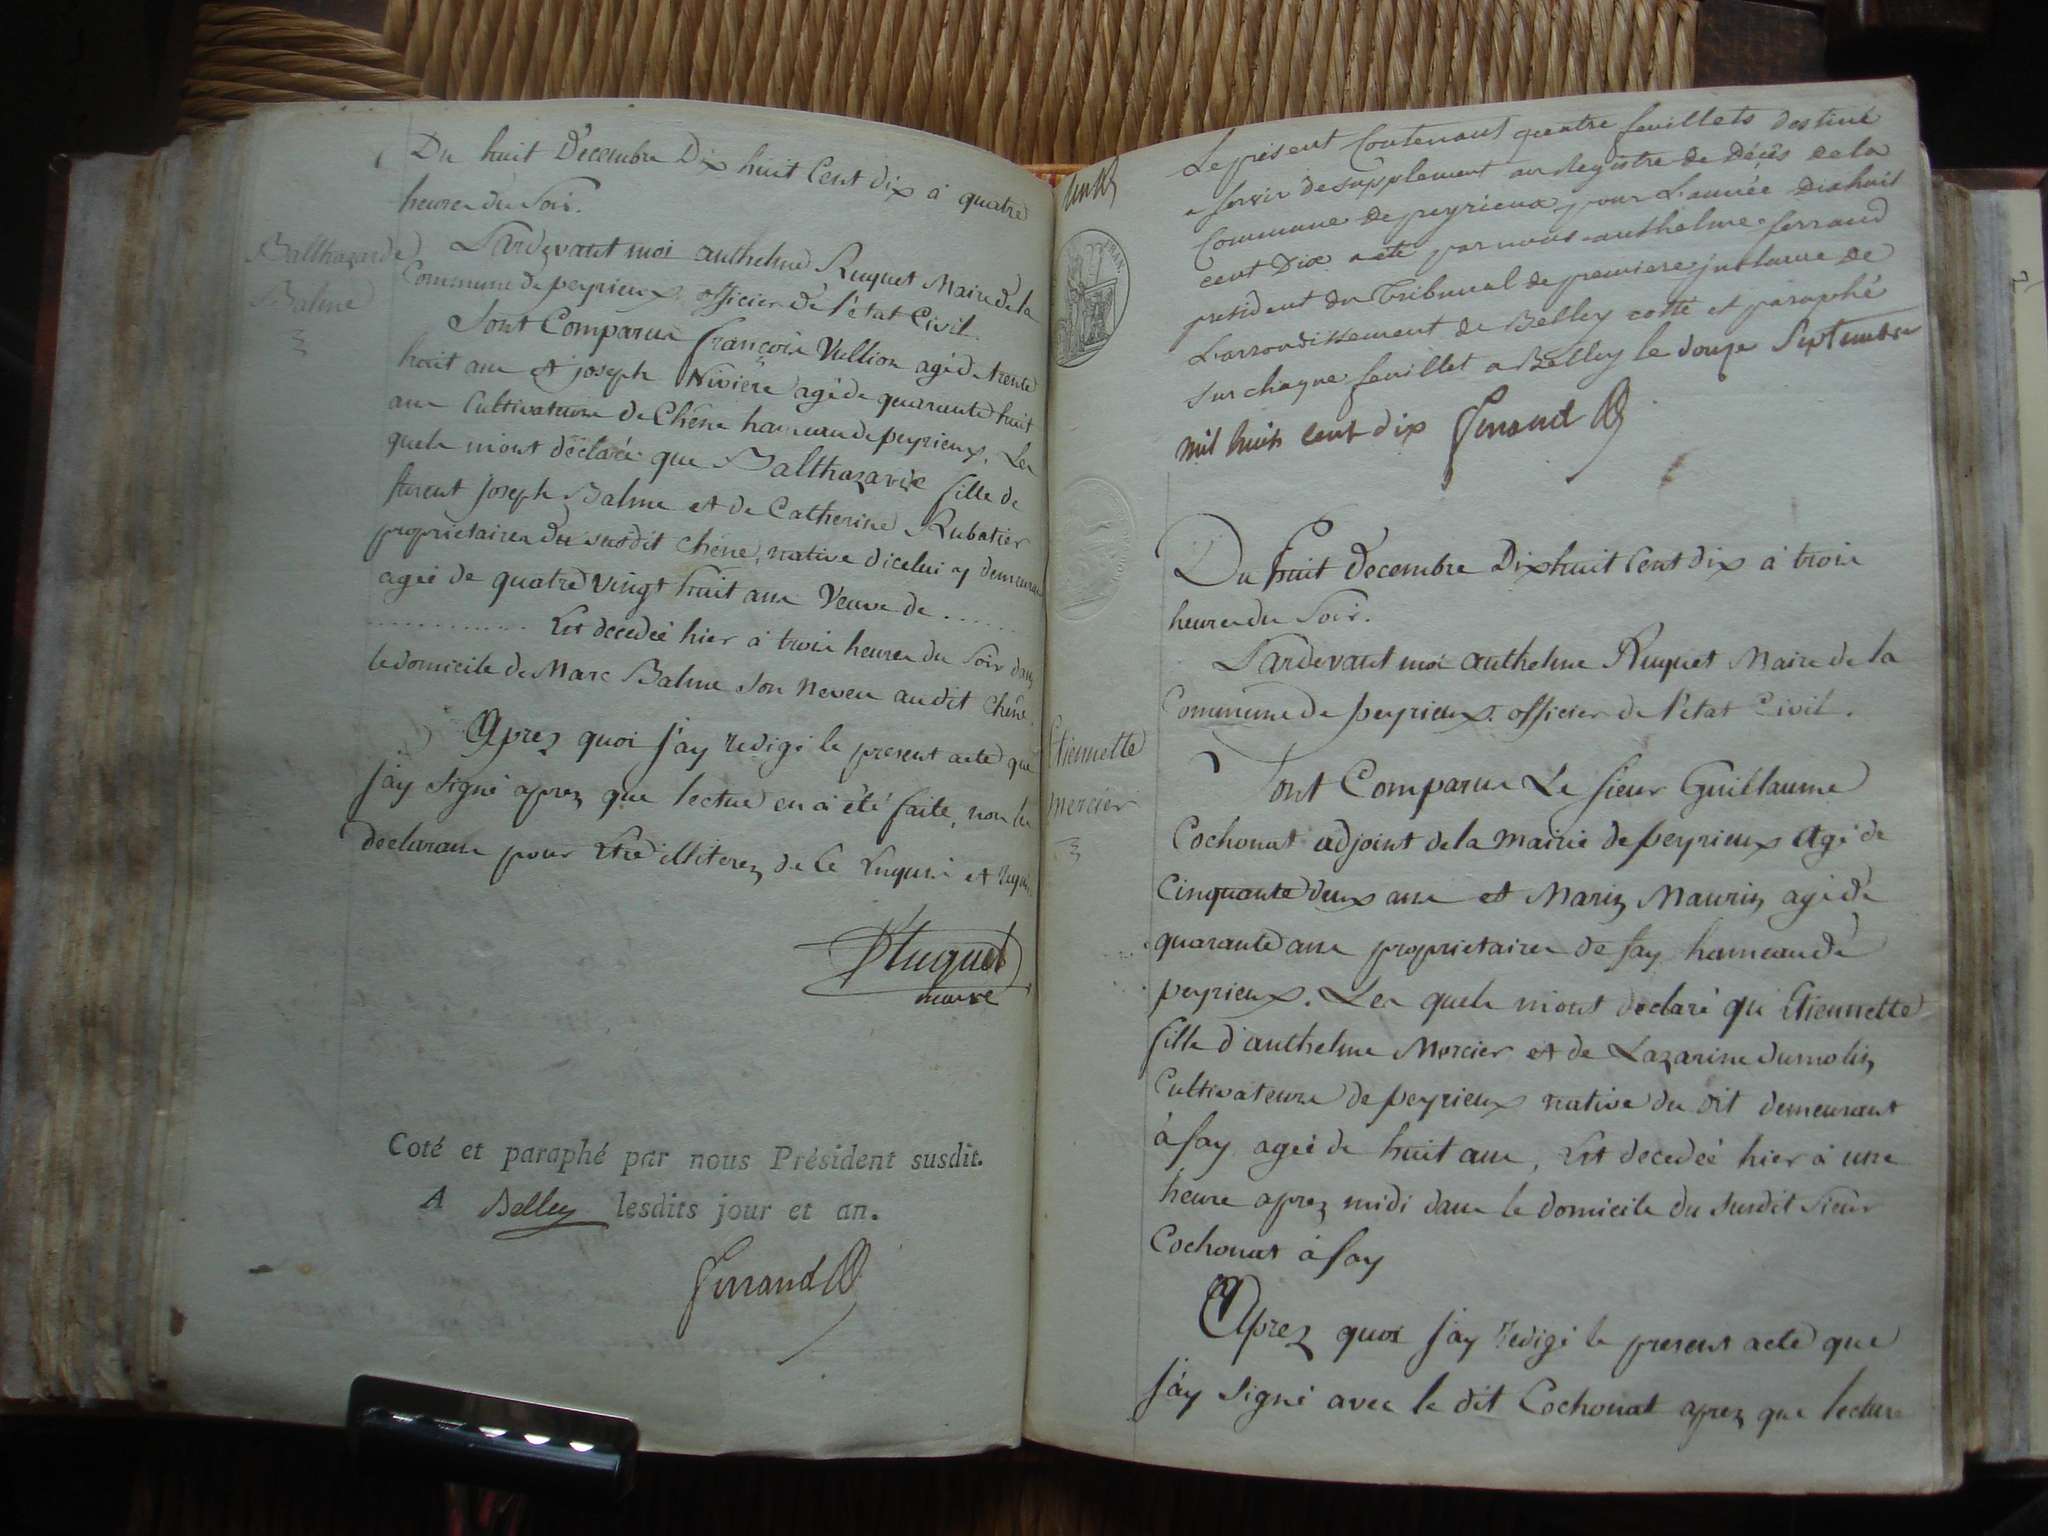 Du huit Décembre Dix huit Cent dix à quatre
heures du Soir.
Balthazarde
Balme
Pardevant moi anthelme Ruquet Maire de la
Commune de peyrieux, officier de l'état Civil.
Sont Comparus françois Vullion agé de trente
huit ans et joseph Nivière agé de quarante huit
ans Cultivateurs de Chêne hameau de peyrieux. Les
quels m'ont déclaré que Balthazarde fille de
furent joseph Balme et de Catherine Rubatier
proprietaires du susdit chêne, native d'icelui y demeurant
agée de quatre vingt huit ans Veuve de ......
............ Est decedée hier à trois heures du Soir dans
le domicile de Marc Balme son neveu au dit Chêne.
Après quoi j'ay redigé le present acte que
j'ay signé après que lecture en a été faite, non les
declarans pour etre illiterez de ce Enquis et requis
Ruquet
maire
Coté et paraphé par nous Président susdit.
A Belley lesdits jour et an.
Ferrand
Le présent Contenant quatre feuillets destiné
a servir de supplement au Registre de Décès de la
Commune de peyrieux pour L'année Dix huit
cent Dix a été par nous anthelme ferrand
président du Tribunal de premiere instance de
L'arrondissement de Belley cotté et paraphé
sur chaque feuillet a Belley le douze Septembre
mil huit cent dix Ferrand
Du huit décembre Dix huit Cent dix à trois
heures du Soir.
Pardevant moi anthelme Ruquet Maire de la
Commune de peyrieux. officier de l'état Civil.
Etiennette
mercier
Sont Comparus Le sieur Guillaume
Cochonat adjoint de la mairie de peyrieux Agé de
Cinquante deux ans et Mariz Mauriz agé de
quarante ans proprietaires de fay hameau de
peyrieux. Les quels m'ont declaré que Etiennette
fille d'anthelme Mercier et de Lazarine dumoliz
Cultivateurs de peyrieux native du dit demeurant
à fay, agée de huit ans, Est decedée hier à une
heure après midi dans le domicile du susdit Sieur
Cochonat à fay
Après quoi j'ay redigé le present acte que
j'ay signé avec le dit Cochonat après que lecture